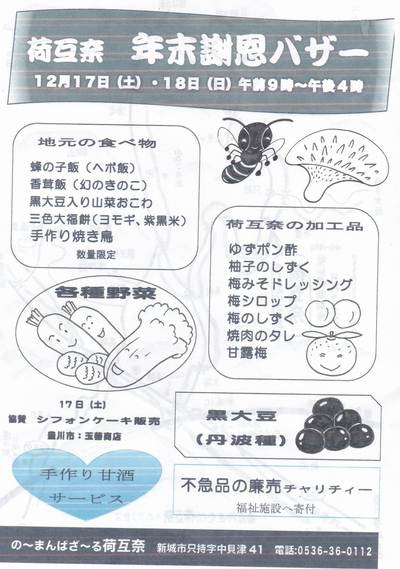 荷互奈 年末謝恩バザー
12月17日（土）・18日（日）午前9時～午後4時
地元の食べ物
蜂の子飯（ヘボ飯）
香茸飯（幻のきのこ）
黒大豆入り山菜おこわ
三色大福餅（ヨモギ、紫黒米）
手作り焼き鳥
数量限定
荷互奈の加工品
ゆずポン酢
柚子のしずく
梅みそドレッシング
梅シロップ
梅のしずく
焼肉のタレ
甘露梅
各種野菜
17日（土）
協賛 シフォンケーキ販売
豊川市：玉善商店
黒大豆
（丹波種）
手作り甘酒
サービス
不急品の廉売チャリティー
福祉施設へ寄付
の～まんばざ～る荷互奈 新城市只持字中貝津41 電話:0536-36-0112